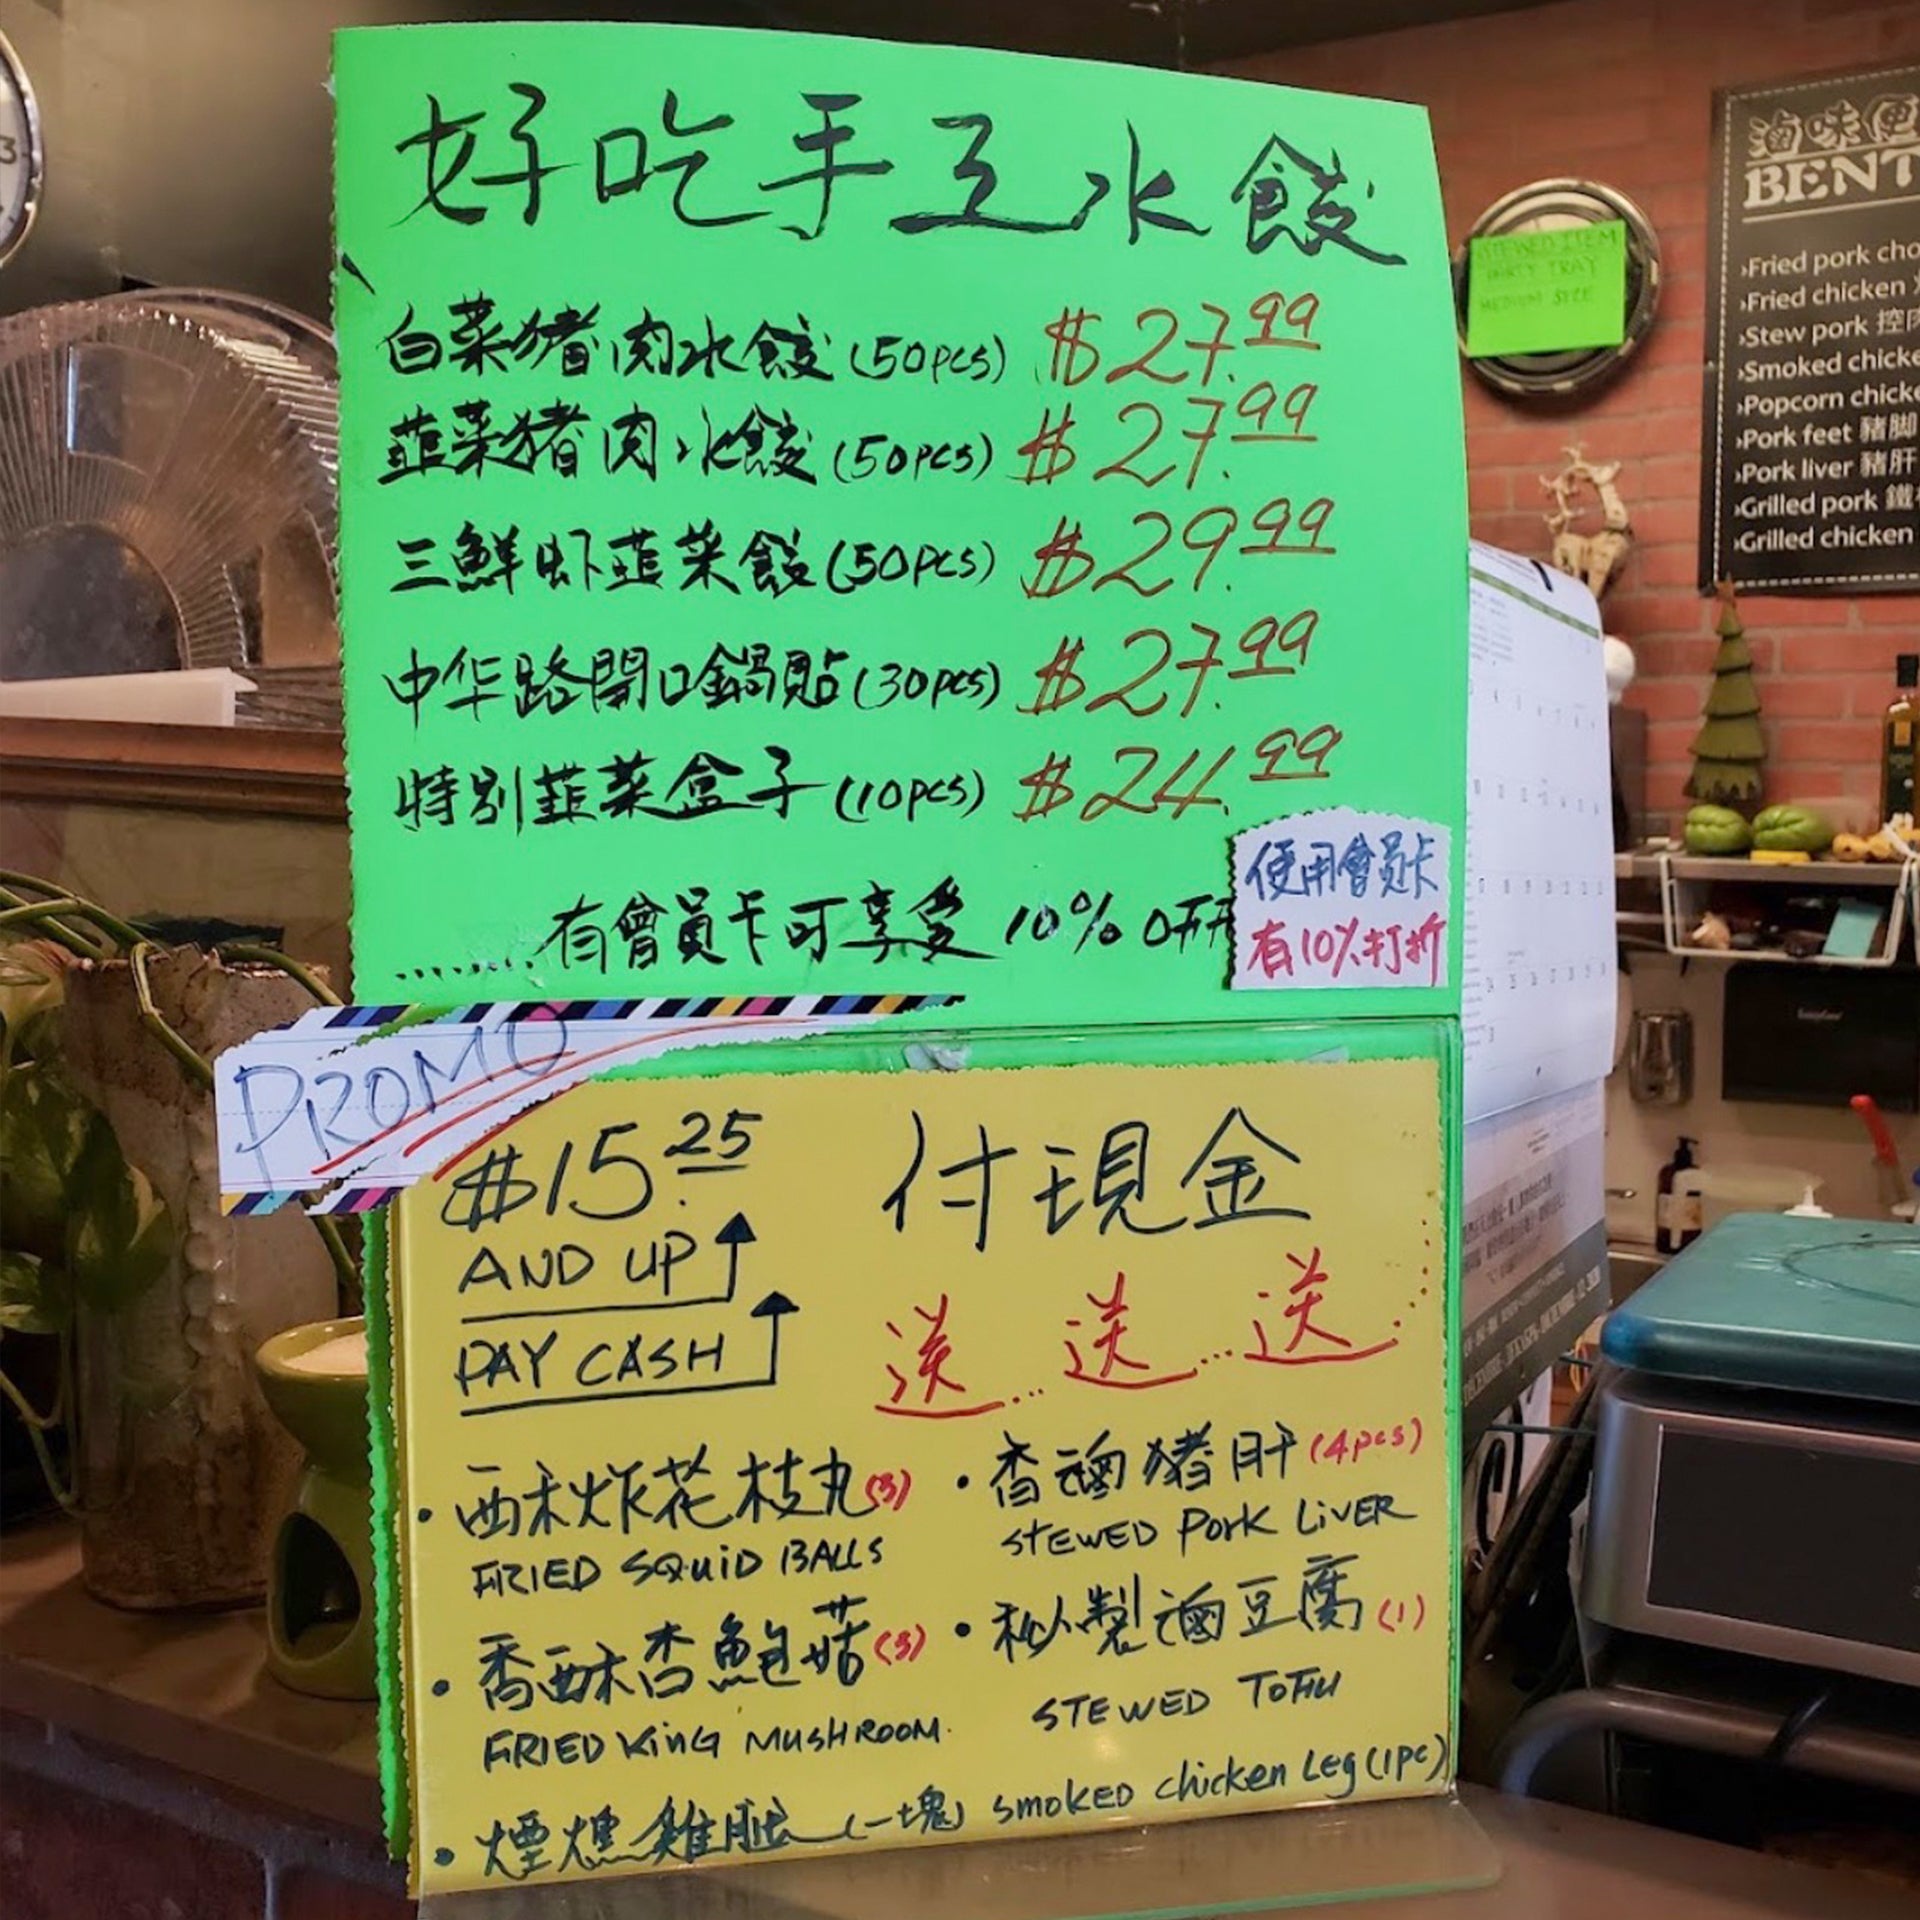 好吃手工水餃
白菜猪肉水餃(50pcs) $27.99
韮菜猪肉水餃(50pcs) $27.99
三鮮虾韮菜餃(50pcs) $29.99
中华路開口鍋貼(30pcs) $27.99
特别韮菜盒子(10pcs) $24.99
........有會員卡可享受 10% OFF
使用會員卡
有10%打折
PROMO
$15.25 付現金
AND UP
PAY CASH
送...送...送......
• 西禾炸花枝丸(3)
FRIED SQUID BALLS
• 香酥杏鮑菇(3)
FRIED KING MUSHROOM.
• 煙燻雞腿(一塊) SMOKED Chicken Leg (1pc)
• 香滷猪肝(4pcs)
STEWED PORK LIVER
• 秘製滷豆腐(1)
STEWED TOFU
STEWED ITEM
PARTY TRAY
MEDIUM SIZE
滷味便
BENT
›Fried pork cho
›Fried chicken
›Stew pork 控肉
›Smoked chicke
›Popcorn chicke
›Pork feet 豬脚
›Pork liver 豬肝
›Grilled pork 鐵
›Grilled chicken
3